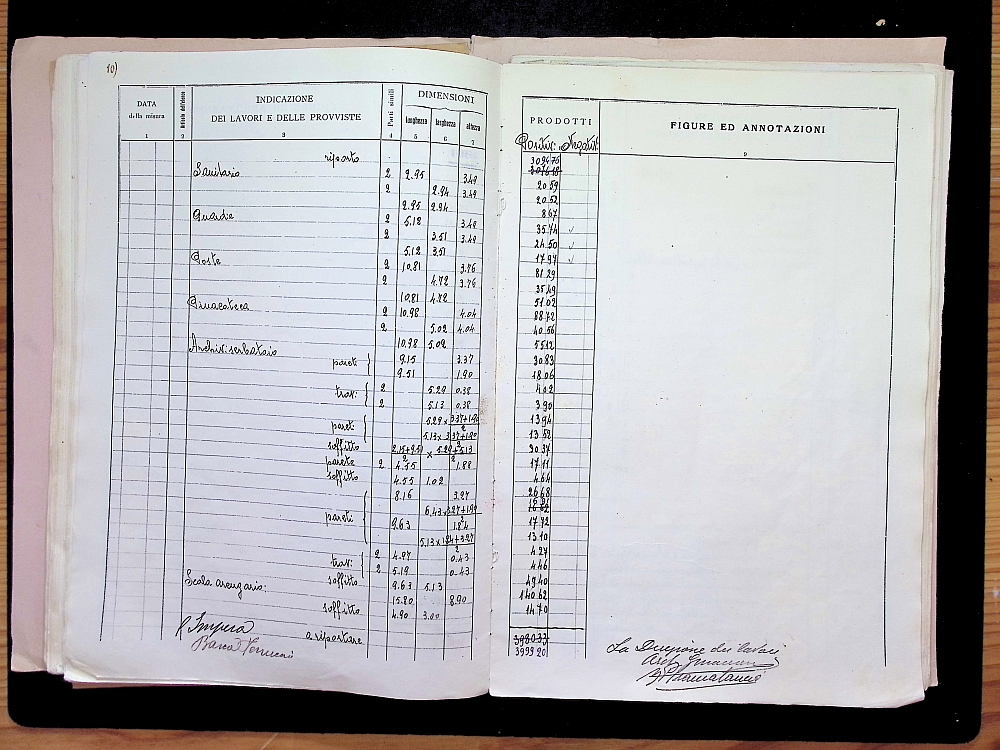 10)
DATA della misura
Articolo dell'elenco
INDICAZIONE
DEI LAVORI E DELLE PROVVISTE
Parti simili
DIMENSIONI
lunghezza larghezza altezza
1 2 3 4 5 6 7
riporto
Sanitario 2 2.95 3.49
2 2.94 3.49
2.95 2.94
Guardie 2 5.12 3.49
2 3.51 3.49
5.12 3.51
Poste 2 10.81 3.76
2 4.72 3.76
10.81 4.72
Pinacoteca 2 10.98 4.04
2 5.02 4.04
10.98 5.02
Archivi: serbatoio
pareti 9.15 3.37
9.51 1.90
travi: 2 5.29 0.38
2 5.13 0.38
pareti 5.29 × 3.37+1.90 2
5.13 × 3.37+1.90 2
soffitto 9.15+9.51 2 × 5.29+5.13 2
parete 2 4.55 1.88
soffitto 4.55 1.02
pareti 8.16 3.27
6.43 × 3.27+1.90 2
9.63 1.84
5.13 × 1.84+3.27 2
travi: 2 4.97 0.43
2 5.19 0.43
soffitto 9.63 5.13
Scala arengario: 15.80 8.90
soffitto 4.90 3.00
a riportare
L'Impresa
PRODOTTI
Positivi Negativi
FIGURE ED ANNOTAZIONI
9
3094 76
20 59
20 52
8 67
35 74
24 50
17 97
81 29
35 49
51 02
88 72
40 56
55 12
30 83
18 06
4 02
3 90
13 94
13 52
30 37
17 11
4 64
26 68
17 72
13 10
4 27
4 46
49 40
140 62
14 70
3980 33
3999 20
La Direzione dei lavori